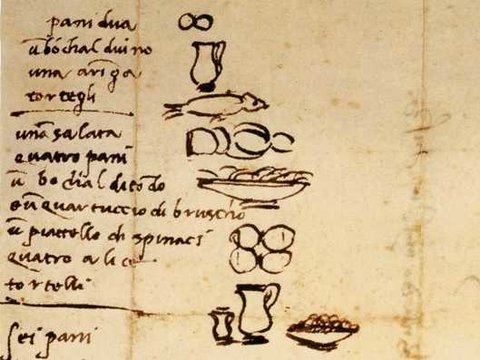 pani dua
ū bochal di vino
una aringa
tortegli
una salata
quatro pani
ū bochal di tōdo
e ū quartuccio di bruscho
ū piattello di spinaci
quatro alice
tortelli
sei pani